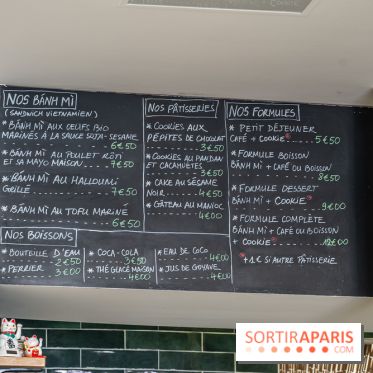 NOS BÁNH MÌ
(SANDWICH VIETNAMIEN)
* BÁNH MÌ AUX OEUFS BIO
MARINÉS À LA SAUCE SOJA-SESAME
6€50
* BÁNH MÌ AU POULET RÔTI
ET SA MAYO MAISON
7€50
* BÁNH MÌ AU HALLOUMI
GRILLÉ
7€50
* BÁNH MÌ AU TOFU MARINÉ
6€50
NOS PÂTISSERIES
* COOKIES AUX
PÉPITES DE CHOCOLAT
3€50
* COOKIES AU PANDAN
ET CACAHUÈTES
3€50
* CAKE AU SÉSAME
NOIR
4€00
* GÂTEAU AU MANIOC
4€00
NOS FORMULES
* PETIT DÉJEUNER
CAFÉ + COOKIE* 5€50
* FORMULE BOISSON
BÁNH MÌ + CAFÉ OU BOISSON
8€50
* FORMULE DESSERT
BÁNH MÌ + COOKIE*
9€00
* FORMULE COMPLÈTE
BÁNH MÌ + CAFÉ OU BOISSON
+ COOKIE* 12€00
* +1€ SI AUTRE PÂTISSERIE
NOS BOISSONS
* BOUTEILLE D'EAU
2€50
* PERRIER 3€00
* COCA-COLA
3€50
* THÉ GLACÉ MAISON
4€00
* EAU DE COCO
4€00
* JUS DE GOYAVE
4€00
SORTIRAPARIS
.COM